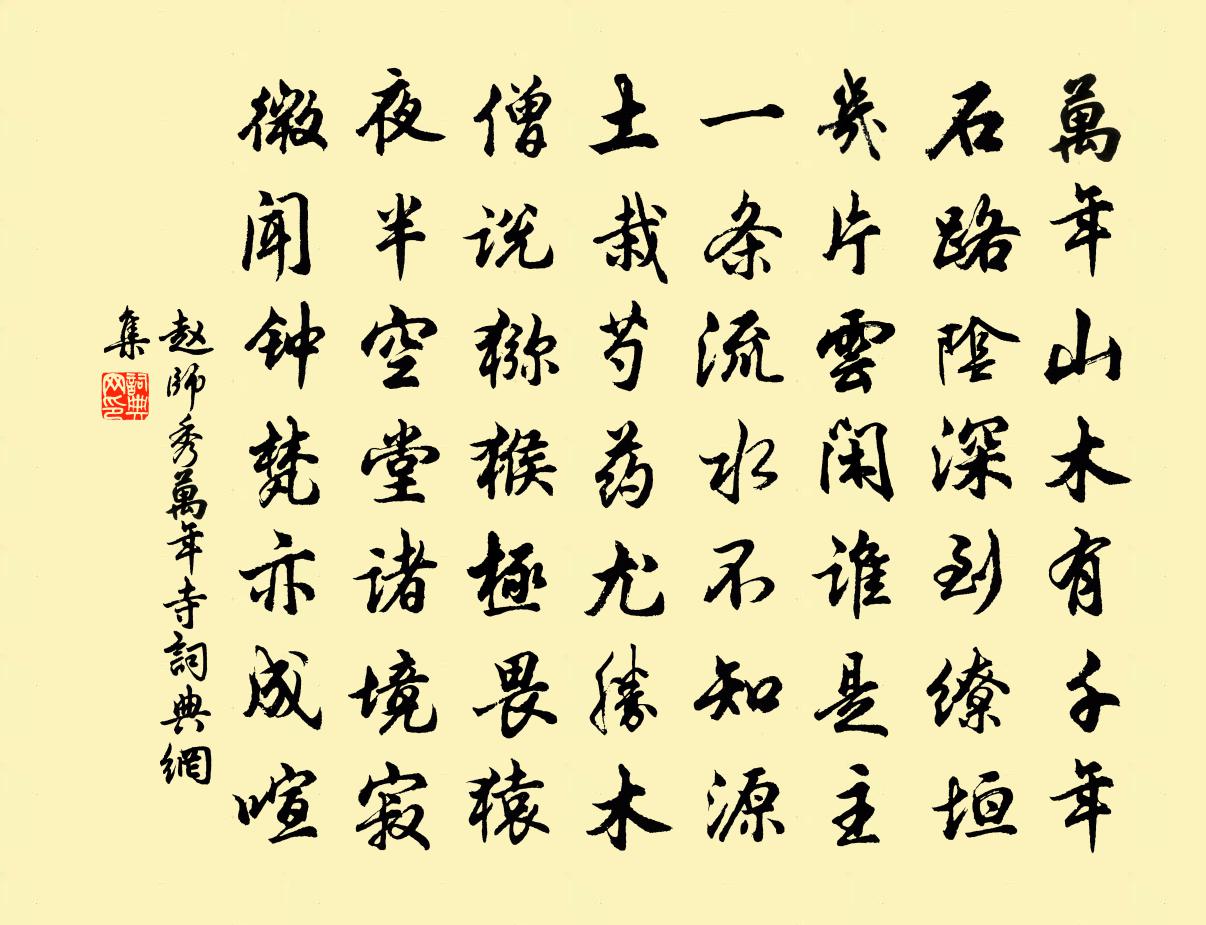 萬年山木有千年
石路陰深到繚垣
幾片雲閑誰是主
一条流水不知源
土栽芍药尤勝木
僧说猕猴極畏猿
夜半空堂诸境寂
微闻钟梵亦成喧
赵師秀萬年寺詞典網
集
詞典
网印